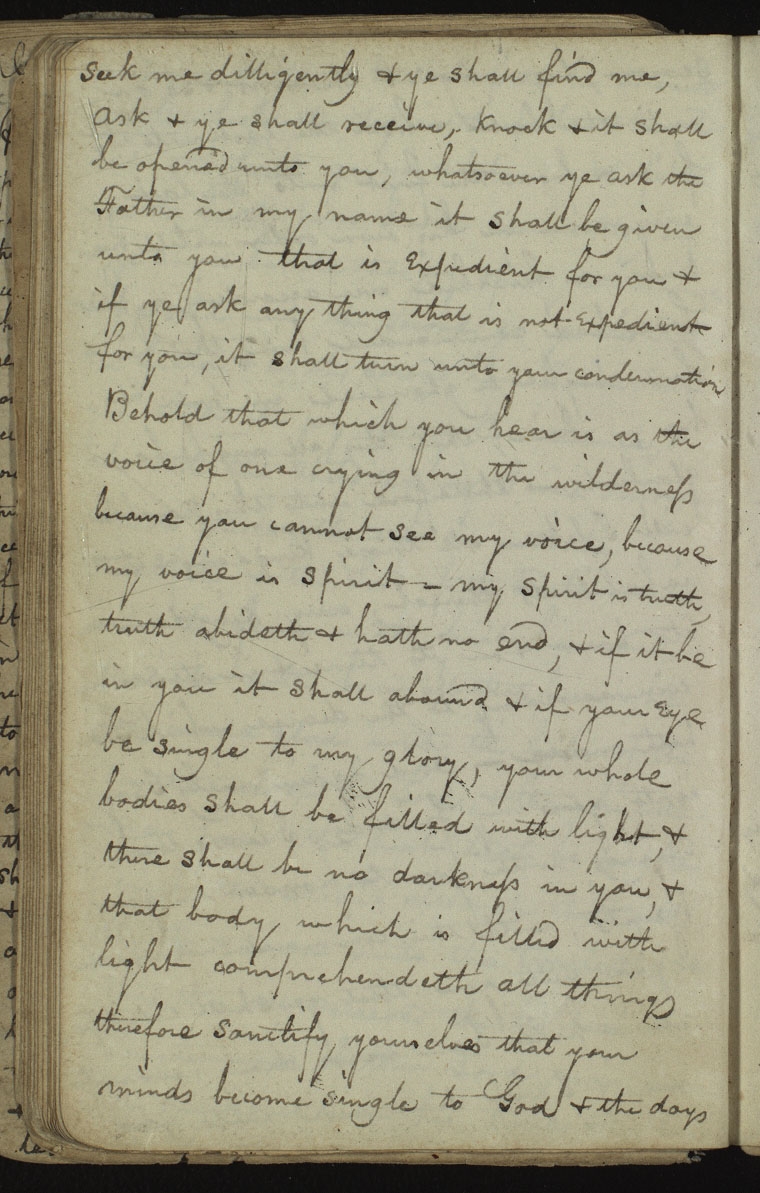 Seek me dilligently & ye shall find me,
Ask & ye shall receive, Knock & it shall
be opened unto you, whatsoever ye ask the
Father in my name it shall be given
unto you that is Expedient for you &
if ye ask any thing that is not Expedient
for you, it shall turn unto your condemnation
Behold that which you hear is as the
voice of one crying in the wilderness
because you cannot see my voice, because
my voice is Spirit - my Spirit is truth,
truth abideth & hath no end, & if it be
in you it shall abound & if your Eye
be single to my glory, your whole
bodies shall be filled with light, &
there shall be no darkness in you, &
that body which is filled with
light comprehendeth all things
therefore sanctify yourselves that your
minds become single to God & the days